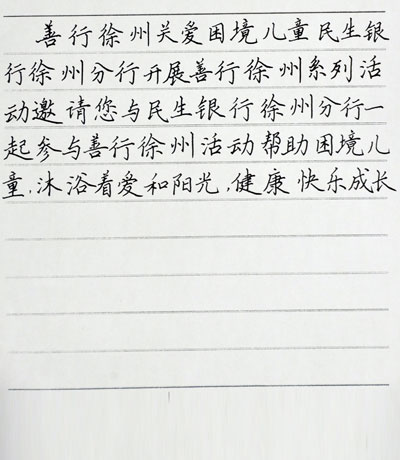 善行徐州关爱困境儿童民生银
行徐州分行开展善行徐州系列活
动邀请您与民生银行徐州分行一
起参与善行徐州活动帮助困境儿
童,沐浴着爱和阳光,健康快乐成长